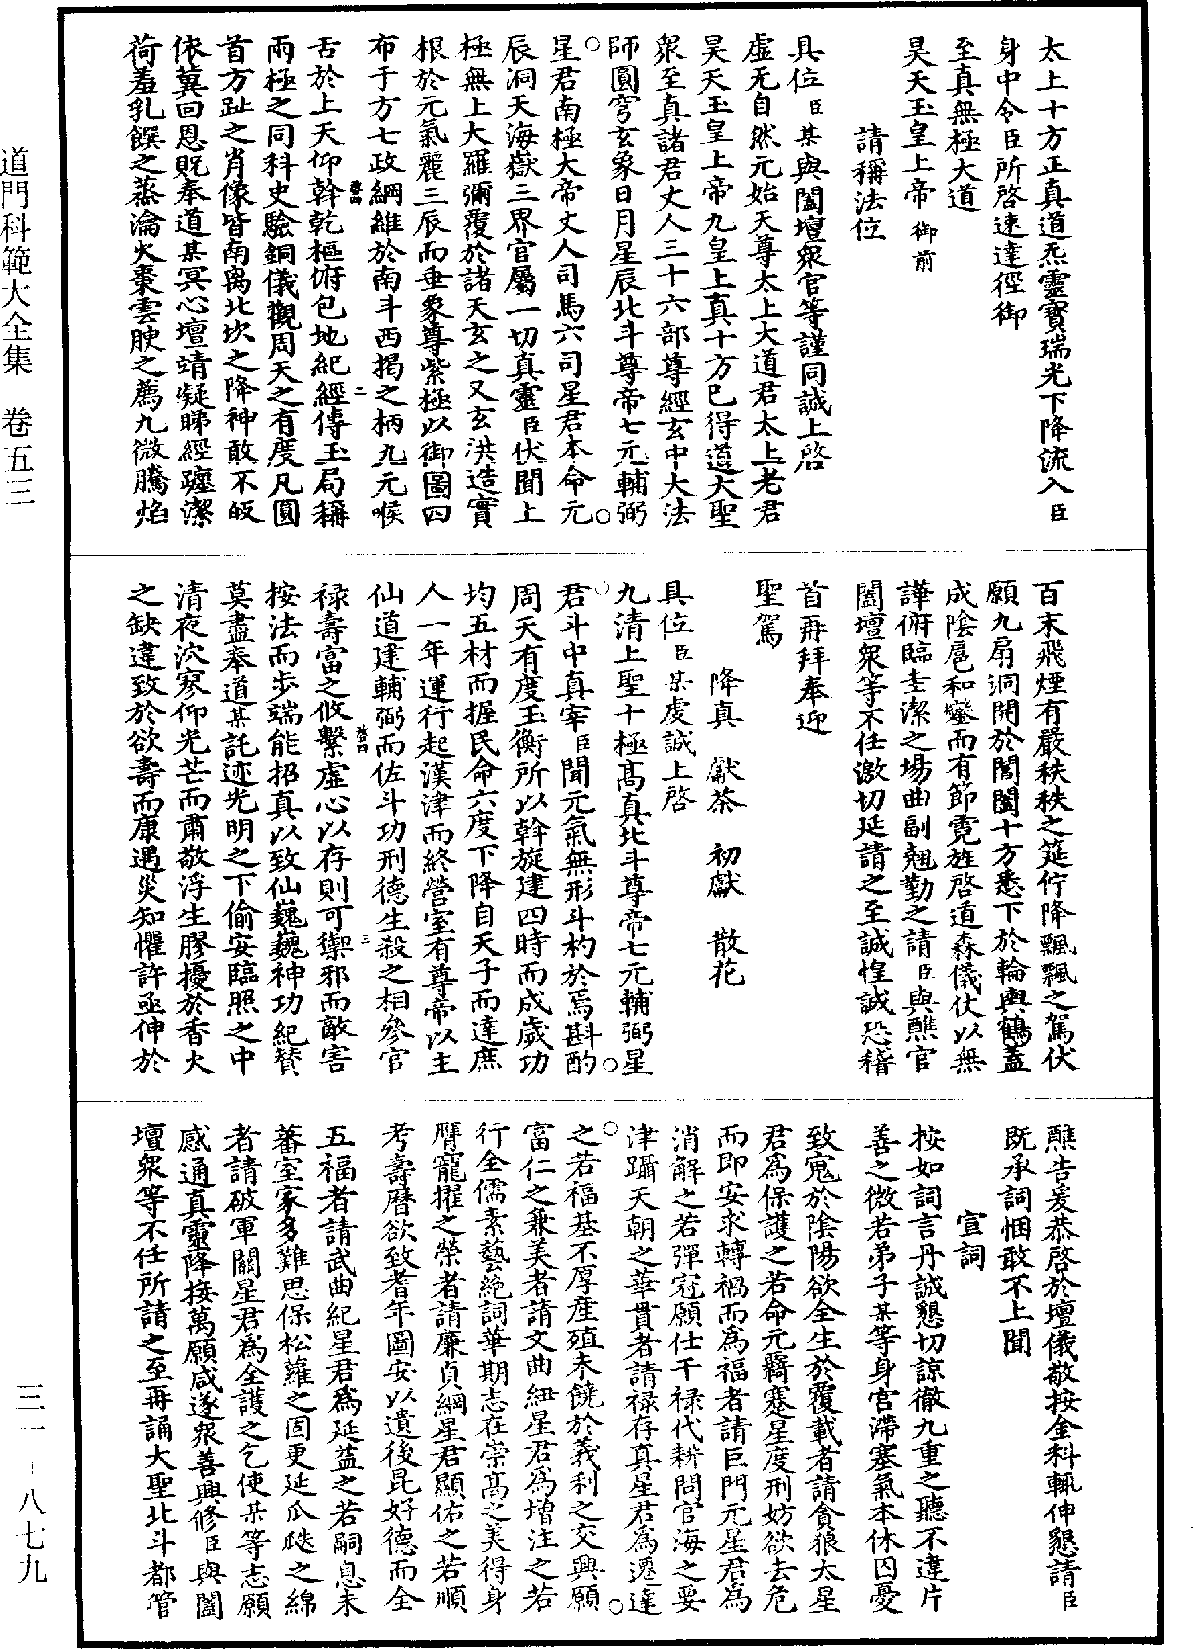 道門科範大全集　卷五三
太上十方正真道炁靈寶瑞光下降流入臣
身中令臣所啓速達徑御
至真無極大道
昊天玉皇上帝御前
請稱法位
具位臣某與闔壇衆官等謹同誠上啓
虛无自然元始天尊太上大道君太上老君
昊天玉皇上帝九皇上真十方已得道大聖
衆至真諸君丈人三十六部尊經玄中大法
師圓穹玄象日月星辰北斗尊帝七元輔弼
星君南極大帝丈人司馬六司星君本命元
辰洞天海嶽三界官屬一切真靈臣伏聞上
極無上大羅彌覆於諸天玄之又玄洪造實
根於元氣麗三辰而垂象尊紫極以御圖四
布于方七政綱維於南斗西揭之柄九元喉
舌於上天仰斡乾樞俯包地紀經傳玉局稱
兩極之同科史驗銅儀觀周天之有度凡圓
首方趾之肖像皆南离北坎之降神敢不皈
依冀回恩貺奉道某冥心壇靖凝睇經躔潔
荷羞乳饌之蒸瀹火棗雲腴之薦九微騰焰
百末飛煙有嚴秩秩之筵佇降飄飄之駕伏
願九扃洞開於閶闔十方悉下於輪輿鶴蓋
成陰扈和鑾而有節霓旌啓道森儀仗以無
譁俯臨圭潔之場曲副翹勤之請臣與醮官
闔壇衆等不任激切延請之至誠惶誠恐稽
首再拜奉迎
聖駕
降真　獻茶　初獻　散花
具位臣某虔誠上啓
九清上聖十極高真北斗尊帝七元輔弼星
君斗中真宰臣聞元氣無形斗杓於焉斟酌
周天有度玉衡所以斡旋建四時而成歲功
均五材而握民命六度下降自天子而達庶
人一年運行起漢津而終營室有尊帝以主
仙道建輔弼而佐斗功刑德生殺之相參官
祿壽富之攸繫虛心以存則可禦邪而敵害
按法而步端能招真以致仙巍巍神功紀贊
莫盡奉道某託迹光明之下偷安臨照之中
清夜泬寥仰光芒而肅敬浮生膠擾於香火
之缺違致於欲壽而康遇災知懼許亟伸於
醮告爰恭啓於壇儀敬按金科輒伸懇請臣
既承詞悃敢不上聞
宣詞
按如詞言丹誠懇切諒徹九重之聽不違片
善之微若弟子某等身宮滯塞氣本休囚憂
致寃於陰陽欲全生於覆載者請貪狼太星
君為保護之若命元覊蹇星度刑妨欲去危
而即安求轉禍而為福者請巨門元星君為
消解之若彈冠願仕干祿代耕問官海之要
津躡天朝之華貫者請祿存真星君為遷達
之若福基不厚産殖未饒於義利之交興願
富仁之兼美者請文曲紐星君為增注之若
行全儒素藝絶詞華期志在崇高之美得身
膺寵擢之榮者請廉貞綱星君顯佑之若順
考壽曆欲致耆年圖安以遺後昆好德而全
五福者請武曲紀星君為延益之若嗣息未
蕃室家多難思保松蘿之固更延瓜瓞之綿
者請破軍關星君為全護之乞使某等志願
感通真靈降接萬願咸遂衆善興修臣與闔
壇衆等不任所請之至再誦大聖北斗都管
三一-八七九